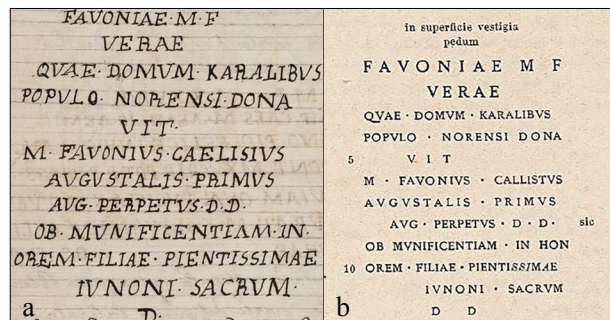 FAVONIAE · M · F
VERAE
QVAE · DOMVM · KARALIBVS
POPVLO · NORENSI · DONA
VIT ·
M · FAVONIVS · CAELISIVS
AVGVSTALIS · PRIMVS
AVG · PERPETVS · D · D ·
OB · MVNIFICENTIAM · IN ·
OREM · FILIAE · PIENTISSIMAE
IVNONI · SACRVM ·
D
a
in superficie vestigia
pedum
FAVONIAE M F
VERAE
QVAE · DOMVM · KARALIBVS
POPVLO · NORENSI DONA
5 V I T
M · FAVONIVS · CALLISTVS
AVGVSTALIS · PRIMVS
AVG · PERPETVS · D · D · sic
OB MVNIFICENTIAM · IN HON
10 OREM · FILIAE · PIENTISSIMAE
IVNONI · SACRVM
D D
b